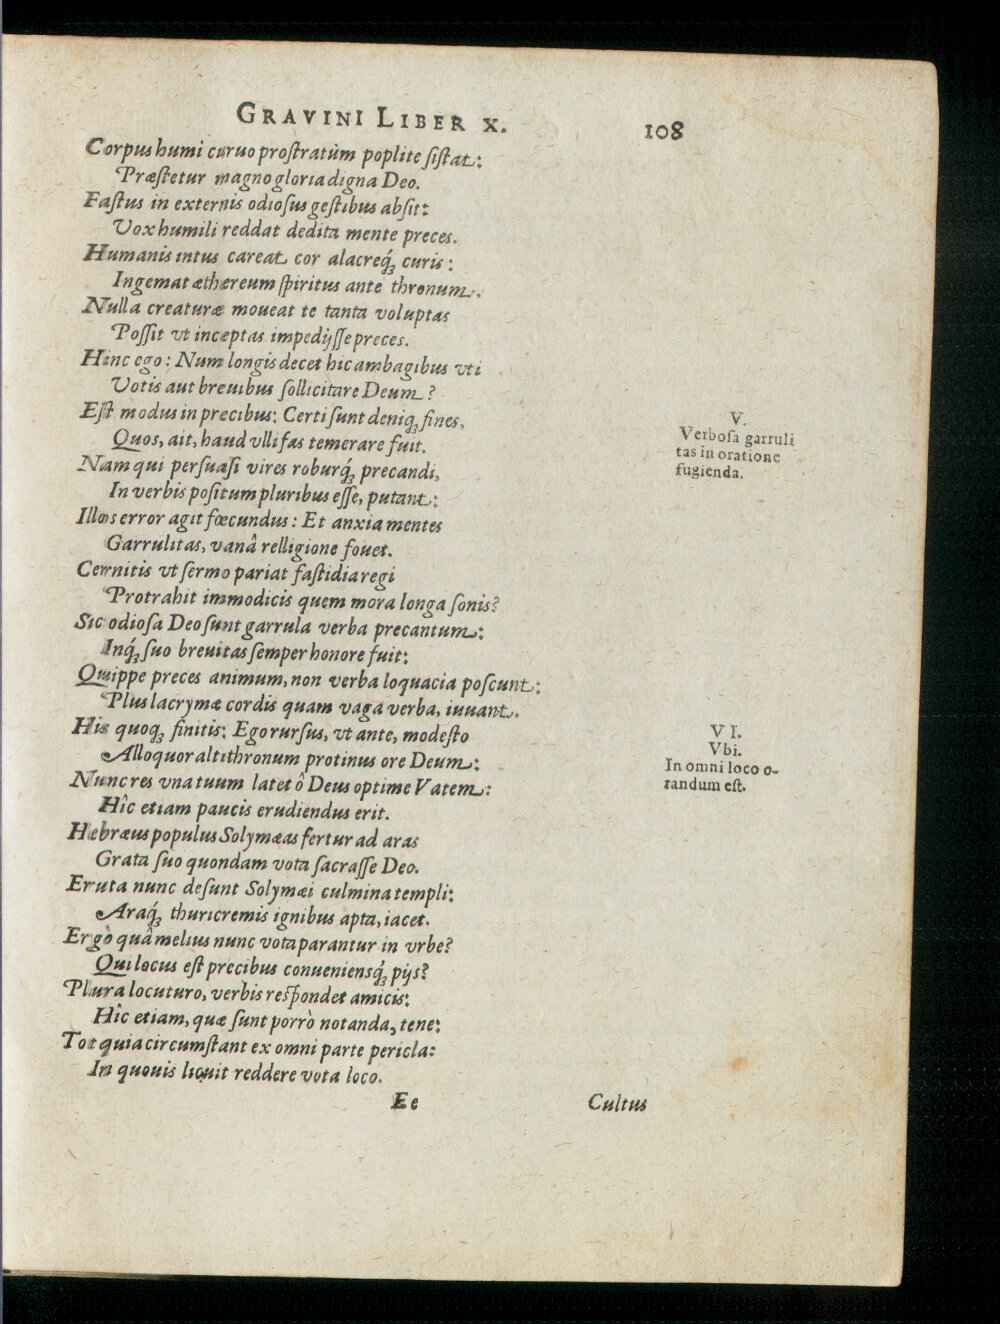 GRAVINI LIBER X. 108
Corpus humi curuo prostratùm poplite sistat:
Præstetur magno gloria digna Deo.
Fastus in externis odiosus gestibus absit:
Vox humili reddat dedita mente preces.
Humanis intus careat cor alacreq́ꝫ curis:
Ingemat æthereum spiritus ante thronum.
Nulla creaturæ moueat te tanta voluptas
Possit vt inceptas impedijsse preces.
Hinc ego: Num longis decet hic ambagibus vti
Votis aut breuibus sollicitare Deum?
Est modus in precibus: Certi sunt deniqꝫ fines,
Quos, ait, haud vlli fas temerare fuit.
V.
Verbosa garruli
tas in oratione
fugienda.
Nam qui persuasi vires roburq́ꝫ precandi,
In verbis positum pluribus esse, putant:
Illos error agit fœcundus: Et anxia mentes
Garrulitas, vanâ relligione fouet.
Cernitis vt sermo pariat fastidia regi
Protrahit immodicis quem mora longa sonis?
Sic odiosa Deo sunt garrula verba precantum:
Inq́ꝫ suo breuitas semper honore fuit:
Quippe preces animum, non verba loquacia poscunt:
Plus lacrymæ cordis quam vaga verba, iuuant.
His quoqꝫ finitis: Ego rursus, vt ante, modesto
Alloquor altithronum protinus ore Deum:
VI.
Vbi.
In omni loco o-
randum est.
Nunc res vna tuum latet ô Deus optime Vatem:
Hîc etiam paucis erudiendus erit.
Hebræus populus Solymæas fertur ad aras
Grata suo quondam vota sacrasse Deo.
Eruta nunc desunt Solymæi culmina templi:
Araq́ꝫ thuricremis ignibus apta, iacet.
Ergò quâ melius nunc vota parantur in vrbe?
Qui locus est precibus conueniensq́ꝫ pijs?
Plura locuturo, verbis respondet amicis:
Hîc etiam, quæ sunt porrò notanda, tene:
Tot quia circumstant ex omni parte pericla:
In quouis liquit reddere vota loco.
Ee Cultus